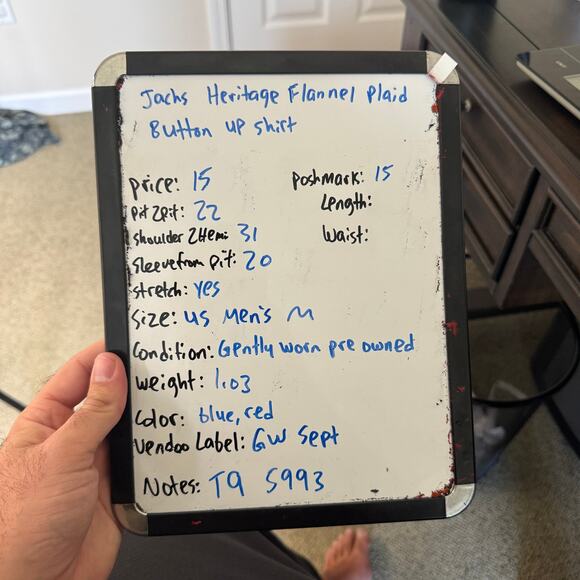 Jachs Heritage Flannel Plaid
Button up shirt
price: 15
poshmark: 15
pit 2 pit: 22
Length:
shoulder 2 Hem: 31
Waist:
sleeve from pit: 20
stretch: yes
Size: US Men's M
Condition: Gently worn pre owned
weight: 1.03
Color: blue, red
Vendoo Label: GW Sept
Notes: T9 5993